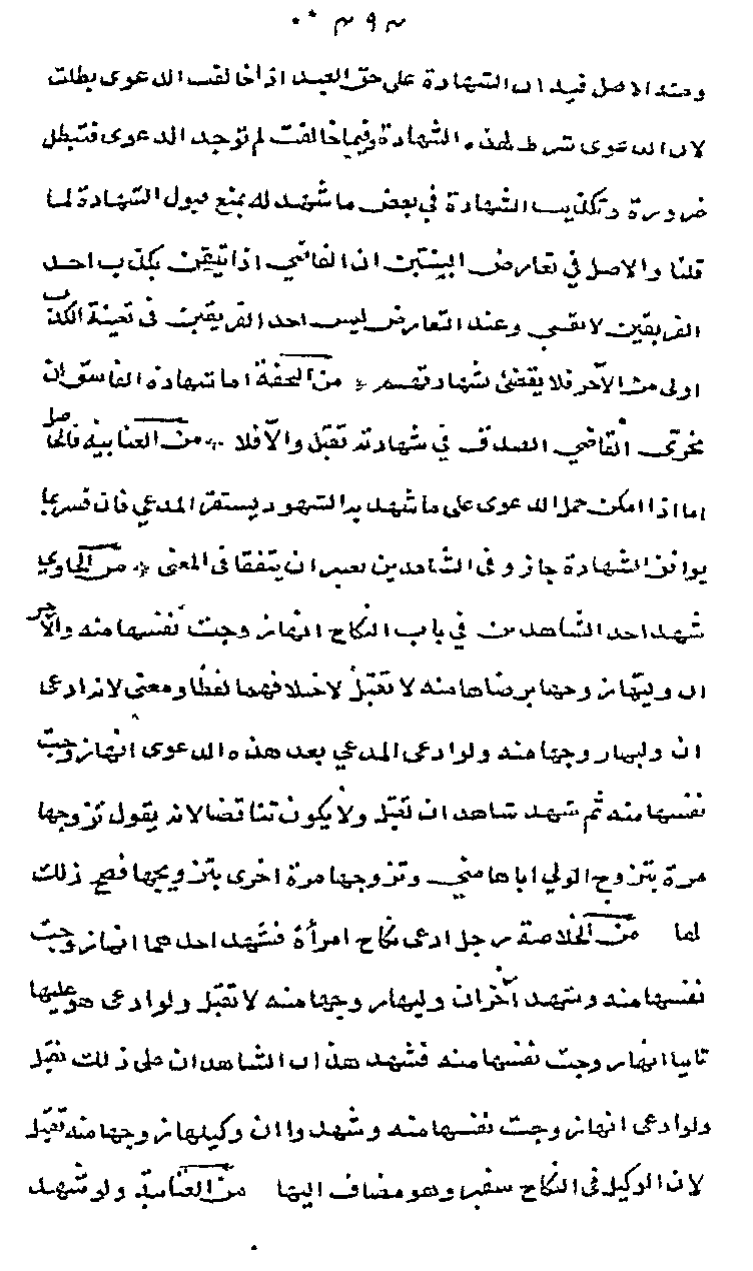 ٣٩٣
وعند الاصل فيه ان الشهادة على حق العبد اذا خالفت الدعوى بطلت
لان الدعوى شرط لهذه الشهادة وفيما خالفت لم توجد الدعوى فتبطل
ضرورة وتكذيب الشهادة في بعض ما شهد له يمنع قبول الشهادة لما
قلنا والاصل في تعارض البينتين ان القاضي اذا تيقن بكذب احد
الفريقين لا يقضي وعند التعارض ليس احد الفريقين في تعينة الكذب
اولى من الآخر فلا يقضى بشهادتهم * من التحفة اما شهادة الفاسق ان
تحرى القاضي الصدق في شهادته تقبل والآفلا * من العتابية فالحاصل
اما اذا امكن حمل الدعوى على ما شهد به الشهود يستفسر المدعي فان فسر بما
يوافق الشهادة جاز وفى الشاهدين يعتبر ان يتفقا فى المعنى * من الحاوي
شهد احد الشاهدين في باب النكاح انها زوجت نفسها منه والآخر
ان وليها زوجها برضاها منه لا تقبل لاختلافهما لفظا ومعنى لانه ادعى
ان وليها زوجها منه ولو ادعى المدعي بعد هذه الدعوى انها زوجت
نفسها منه ثم شهد شاهدان تقبل ولا يكون تناقضا لانه يقول تزوجها
مرة بتزوج الولي اياها مني وتزوجها مرة اخرى بتزويجها فصح ذلك
لما من الخلاصة رجل ادعى نكاح امرأة فشهد احدهما انها زوجت
نفسها منه وشهد آخران وليها زوجها منه لا تقبل ولو ادعى هو عليها
ثانيا انها زوجت نفسها منه فشهد هذان الشاهدان على ذلك تقبل
ولو ادعى انها زوجت نفسها منه وشهدوا ان وكيلها زوجها منه تقبل
لان الوكيل فى النكاح سفير وهو مضاف اليها من العتابية ولو شهد